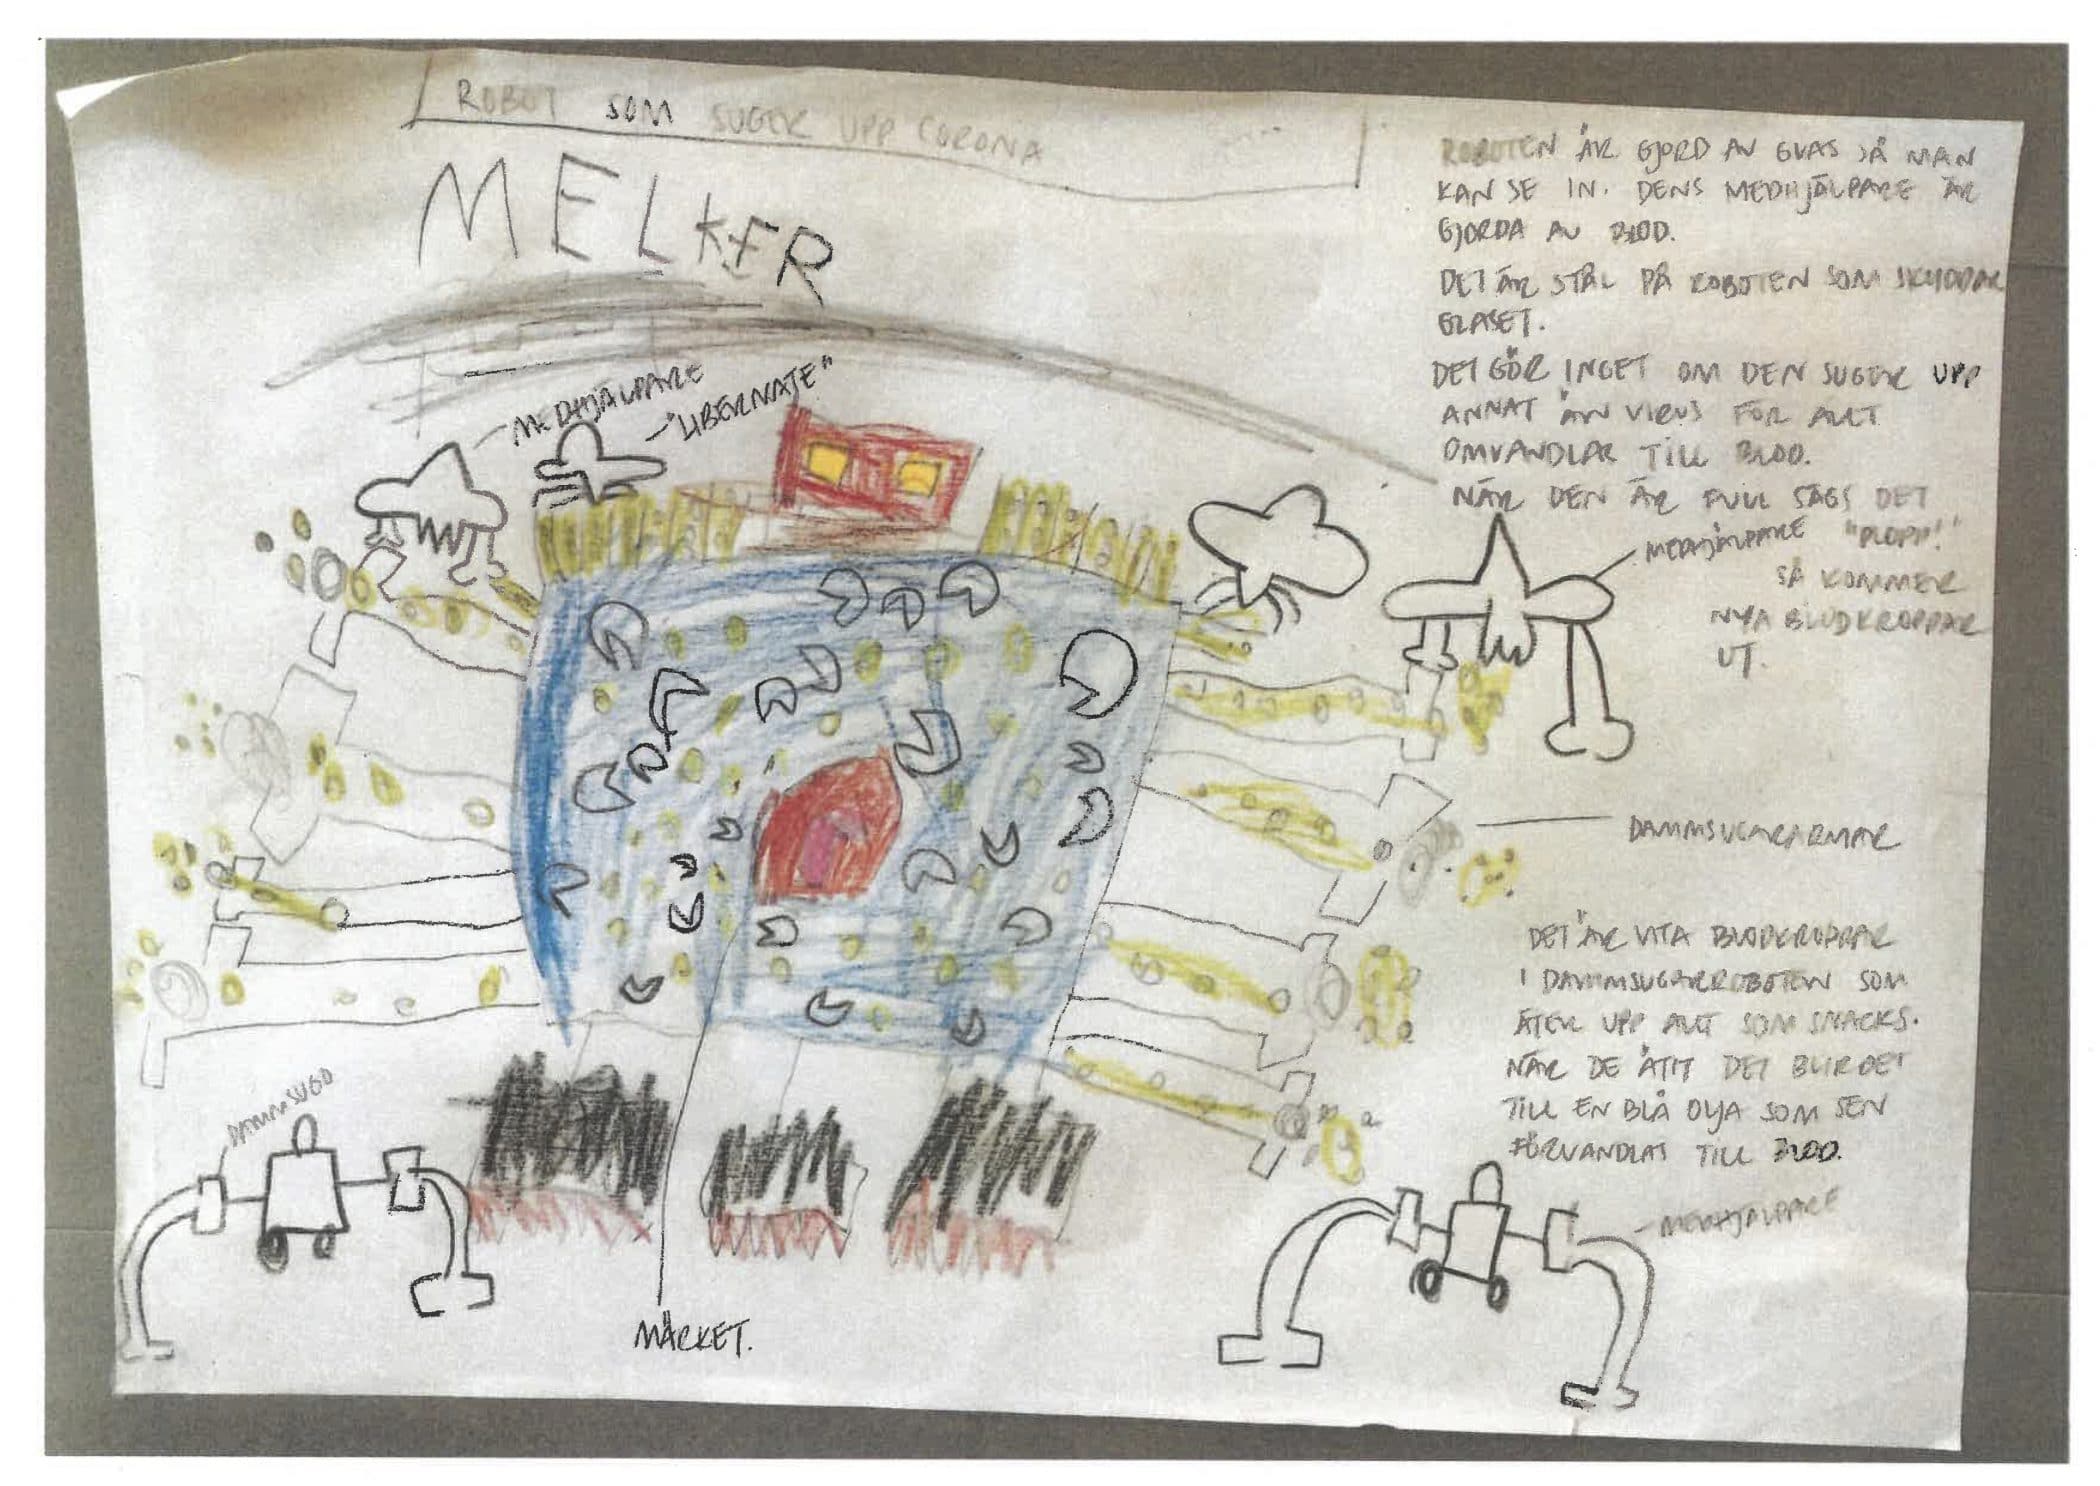 ROBOT SOM SUGER UPP CORONA
MELKER
MEDHJÄLPARE
"LIBERNATE"
ROBOTEN ÄR GJORD AV GLAS SÅ MAN
KAN SE IN. DENS MEDHJÄLPARE ÄR
GJORDA AV BLOD.
DET ÄR STÅL PÅ ROBOTEN SOM SKYDDAR
GLASET.
DET GÖR INGET OM DEN SUGER UPP
ANNAT ÄN VIRUS FÖR ALLT
OMVANDLAR TILL BLOD.
NÄR DEN ÄR FULL SÄGS DET
"PLOPP!"
SÅ KOMMER
NYA BLODKROPPAR
UT.
MEDHJÄLPARE
DAMMSUGARARMAR
DET ÄR VITA BLODKROPPAR
I DAMMSUGARROBOTEN SOM
ÄTER UPP ALLT SOM SNACKS.
NÄR DE ÄTIT DET BLIR DET
TILL EN BLÅ OLJA SOM SEN
FÖRVANDLAS TILL BLOD.
MEDHJÄLPARE
DAMMSUGO
MÄRKET.